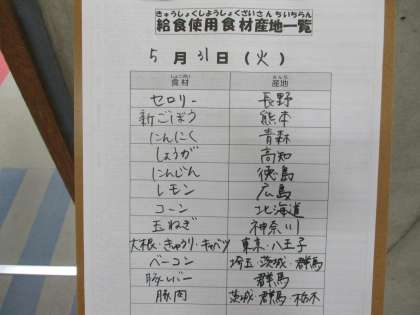 きゅうしょくしようしょくざいさんちいちらん
給食使用食材産地一覧
5月31日(火)
しょくざい さんち
食材 産地
セロリー 長野
新ごぼう 熊本
にんにく 青森
しょうが 高知
にんじん 徳島
レモン 広島
コーン 北海道
玉ねぎ 神奈川
大根・きゅうり・キャベツ 東京・八王子
ベーコン 埼玉・茨城・群馬
豚レバー 群馬
豚肉 茨城・群馬・栃木